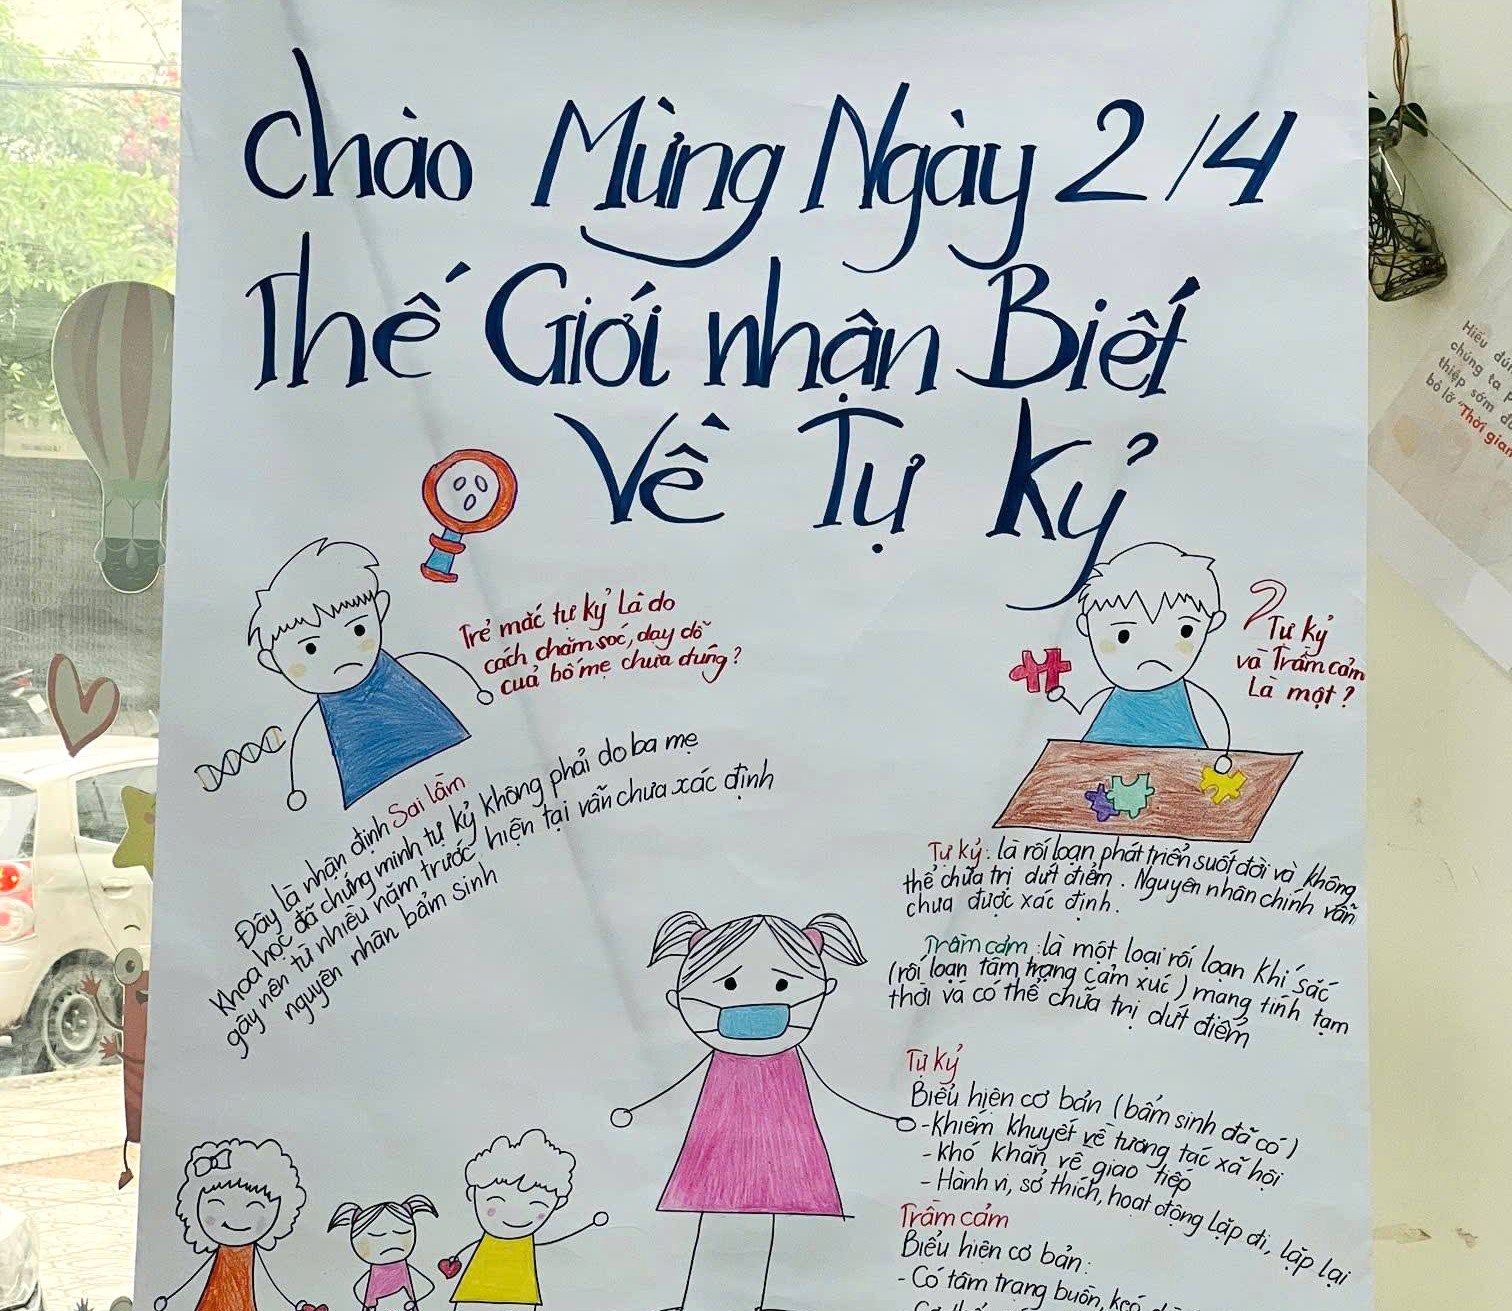 Chào Mừng Ngày 2/4
Thế Giới nhận Biết
Về Tự Kỷ
Trẻ mắc tự kỷ Là do
cách chăm sóc, dạy dỗ
của bố mẹ chưa đúng?
Đây là nhận định Sai lầm
Khoa học đã chứng minh tự kỷ không phải do ba mẹ
gây nên từ nhiều năm trước, hiện tại vẫn chưa xác định
nguyên nhân bẩm sinh
?
Tự Kỷ
và Trầm cảm
Là một?
Tự kỷ: là rối loạn phát triển suốt đời và không
thể chữa trị dứt điểm. Nguyên nhân chính vẫn
chưa được xác định.
Trầm cảm: là một loại rối loạn khí sắc
(rối loạn tâm trạng cảm xúc) mang tính tạm
thời và có thể chữa trị dứt điểm
Tự kỷ
Biểu hiện cơ bản (bẩm sinh đã có)
- Khiếm khuyết về tương tác xã hội
- Khó khăn về giao tiếp
- Hành vi, sở thích, hoạt động lặp đi, lặp lại
Trầm cảm
Biểu hiện cơ bản:
- Có tâm trạng buồn,
Hiểu
chúng ta
thiệp sớm
bỏ lỡ "Thời gian